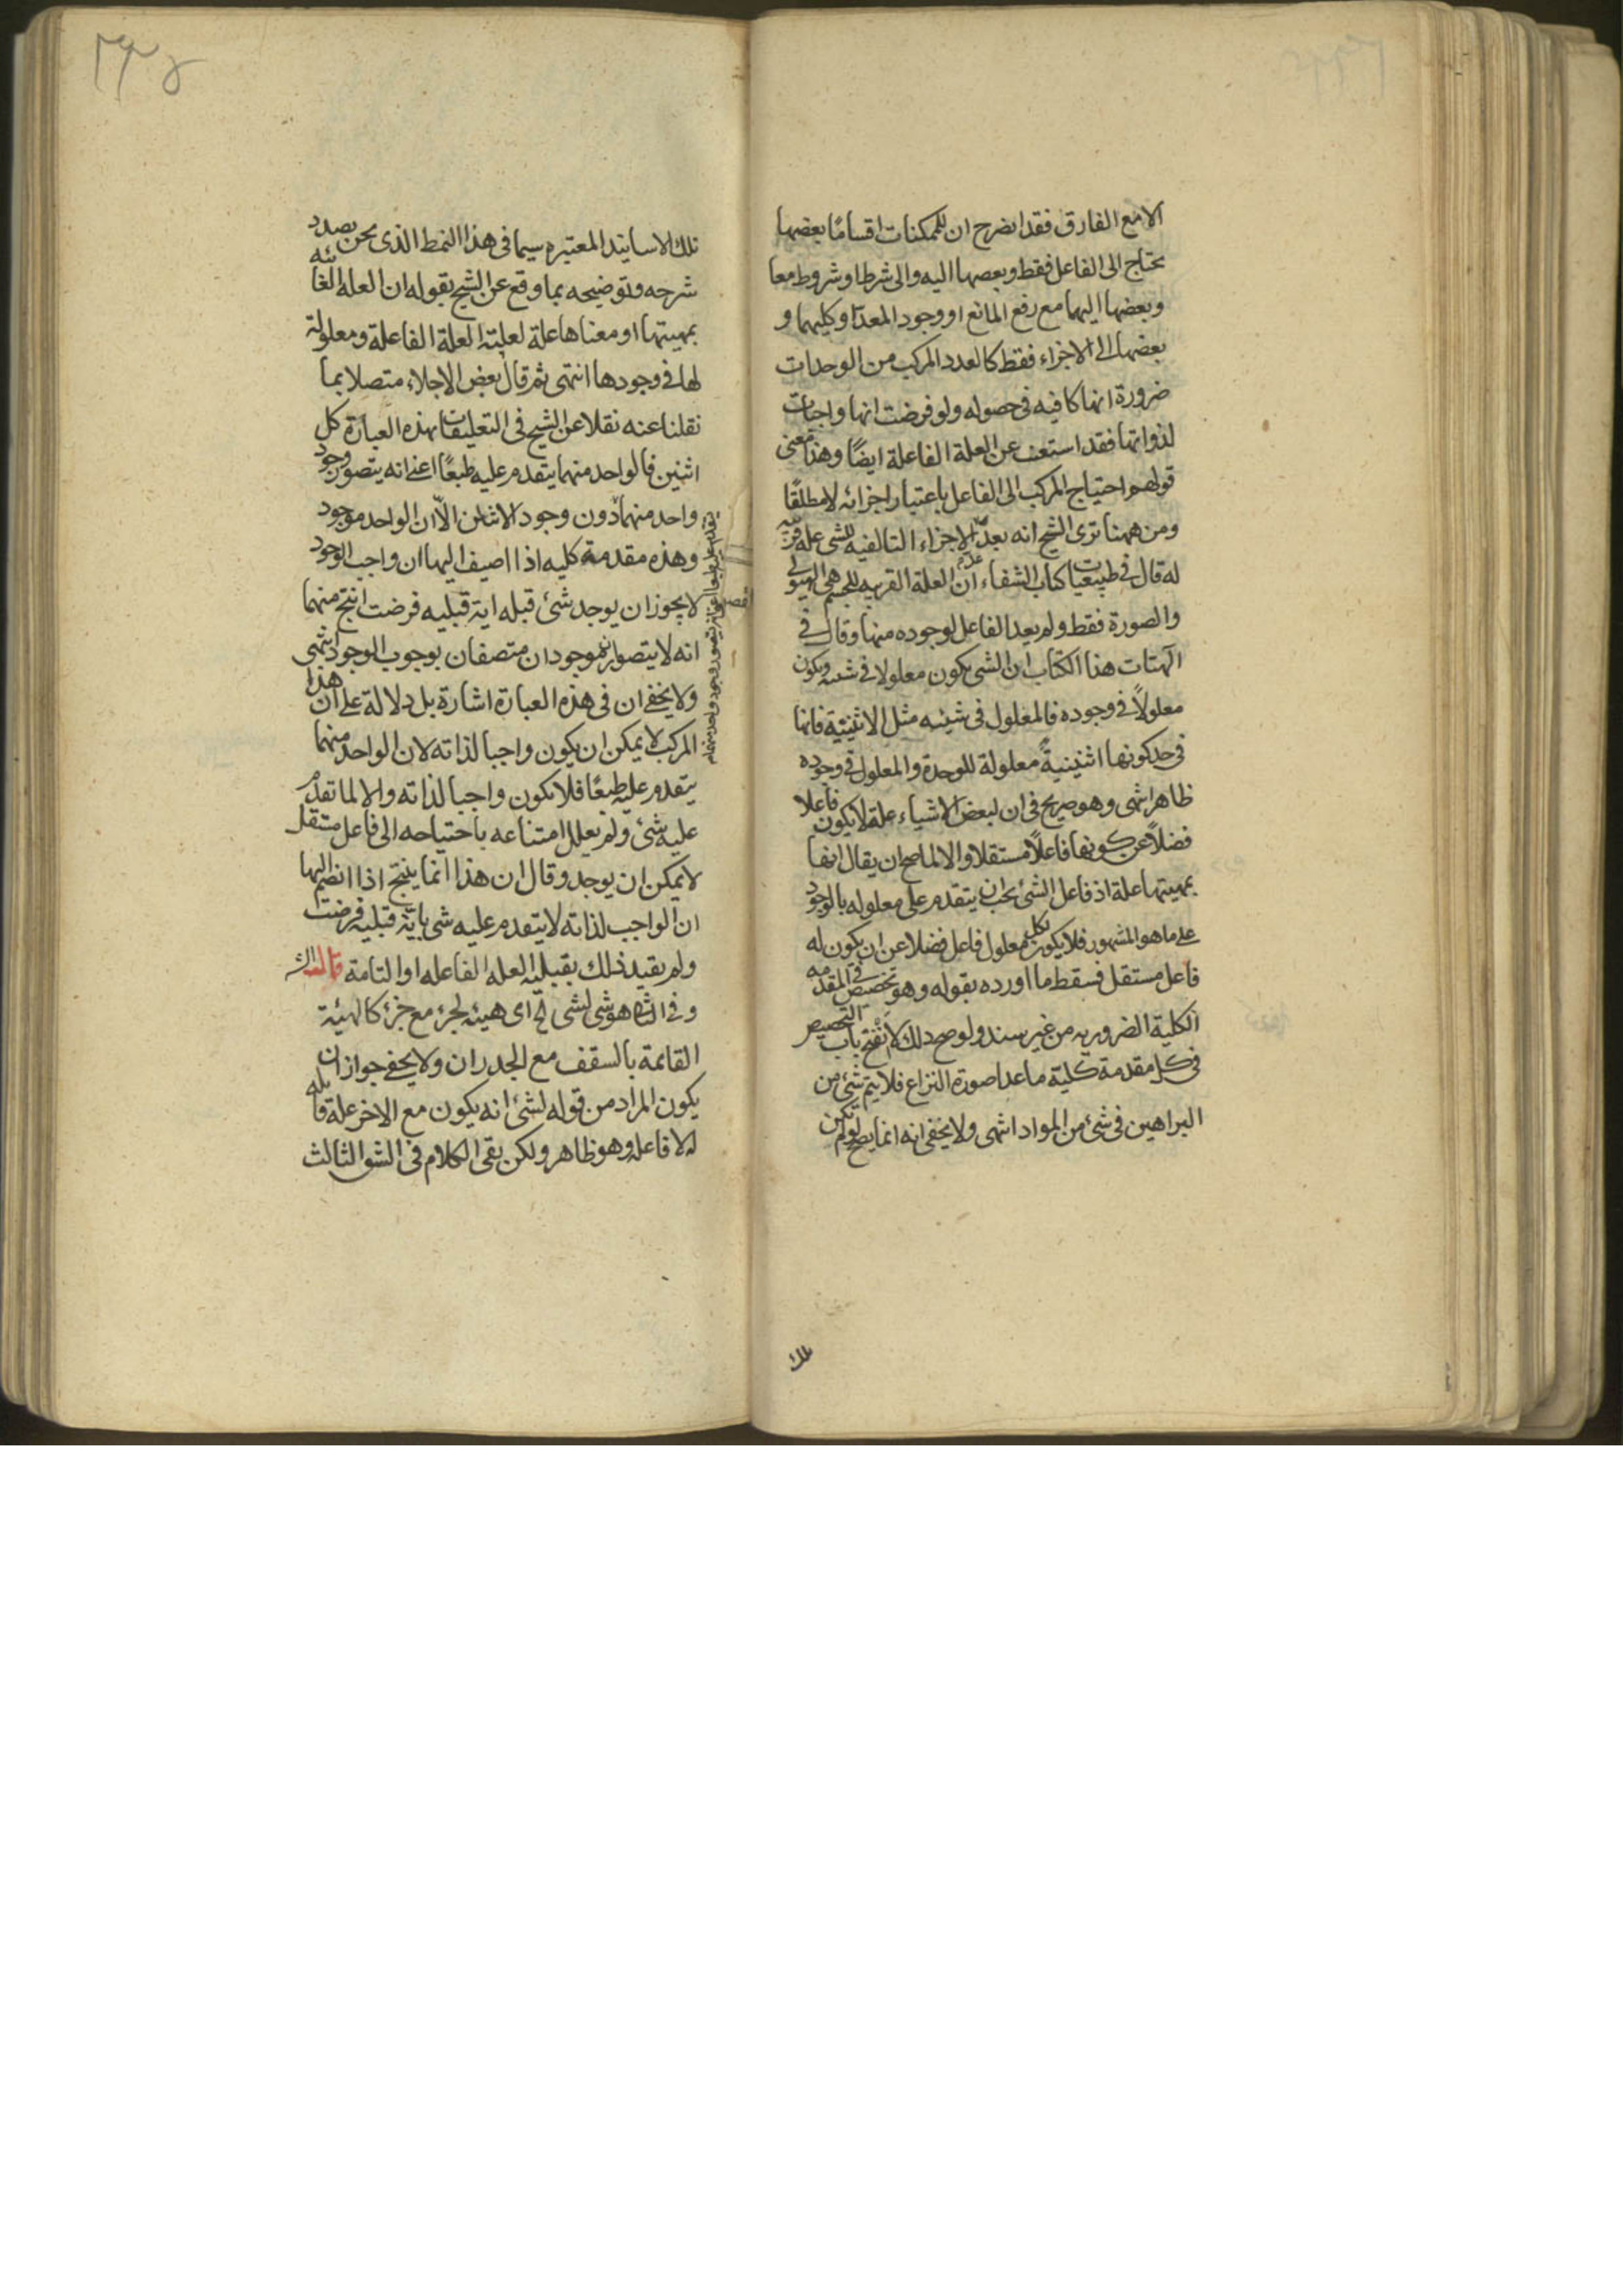 الامع الفارق فقد اتضرح ان للممكنات اقسامًا بعضها
يحتاج الى الفاعل فقط وبعضها اليه والى شرط او شروط معا
وبعضها اليهما مع رفع المانع او وجود المعد او كليهما و
بعضها الى الاجزاء فقط كالعدد المركب من الوحدات
ضرورة انها كافيه في حصوله ولو فرضت انها واجبات
لذواتها فقد استغنت عن العلة الفاعلة ايضًا وهذا معنى
قولهم احتياج المركب الى الفاعل باعتبار اجزائه لا مطلقًا
ومن ههنا ترى الشيخ انه يعدّ الاجزاء التالفيه للشى علة قريبه
له قال في طبيعيات كتاب الشفاء ان العلة القريبه للجسم هى الهيولى
والصورة فقط ولم يعد الفاعل لوجوده منها وقال فى
الهيات هذا الكتاب ان الشى يكون معلولا فى شيئيه ويكون
معلولاً فى وجوده فالمعلول فى شيئيه مثل الاثنينية فانها
فى حد كونها اثنينيةً معلولة للوحدة والمعلول فى وجوده
ظاهر انتهى وهو صريح فى ان لبعض الاشياء علة لا يكون فاعلا
فضلاً عن كونها فاعلاً مستقلا والا لما صح ان يقال انها
بمهيتها علة اذ فاعل الشئ يجب ان يتقدم على معلوله بالوجود
على ما هو المشهور فلا يكون لكل معلول فاعل فضلا عن ان يكون له
فاعل مستقل فسقط ما اورده بقوله وهو تخصيص فى المقدمه
الكلية الضروريه من غير سند ولو صح ذلك لانفتح باب التخصيص
فى كل مقدمة كلية ما عدا صورة النزاع فلا يتم شئ من
البراهين فى شئ من المواد انتهى ولا يخفى انه انما يصح لو لم تكن
تلك
٢٣٤
تلك الاسانيد المعتبره سيما فى هذا النمط الذى نحن بصدد
شرحه وتوضيحه بما وقع عن الشيخ بقوله ان العلة الغائيه
بمهيتها او معناها علة لعلية العلة الفاعلة ومعلولة
لها فى وجودها انتهى ثم قال بعض الاجلاء متصلا بما
نقلنا عنه نقلا عن الشيخ فى التعليقات بهذه العبارة كل
اثنين فالواحد منهما يتقدم عليه طبعًا اعنى انه يتصور وجود
واحد منهما دون وجود الاثنان الّا ان الواحد موجود
وهذه مقدمة كليه اذا اضيف اليها ان واجب الوجود
لا يجوز ان يوجد شئ قبله اية قبليه فرضت انتج منهما
انه لا يتصور موجودان متصفان بوجوب الوجود انتهى
ولا يخفى ان فى هذه العبارة اشارة بل دلالة على ان هذا
المركب لا يمكن ان يكون واجبا لذاته لان الواحد منهما
يتقدم عليه طبعًا فلا يكون واجبا لذاته والا لما تقدم
عليه شئ ولم يعلل امتناعه باحتياجه الى فاعل مستقل
لا يمكن ان يوجد وقال ان هذا انما ينتج اذا انضم اليها
ان الواجب لذاته لا يتقدم عليه شى باية قبليه فرضت
ولم يقيد ذلك بقبلية العله الفاعله او التامة قال
وفى هو شى لشى الخ اى هيئه لجزء مع جزء كالهيئة
القائمة بالسقف مع الجدران ولا يخفى جواز ان
يكون المراد من قوله لشئ انه يكون مع الاخر علة قابله
له لا فاعله وهو ظاهر ولكن بقى الكلام فى الشق الثالث